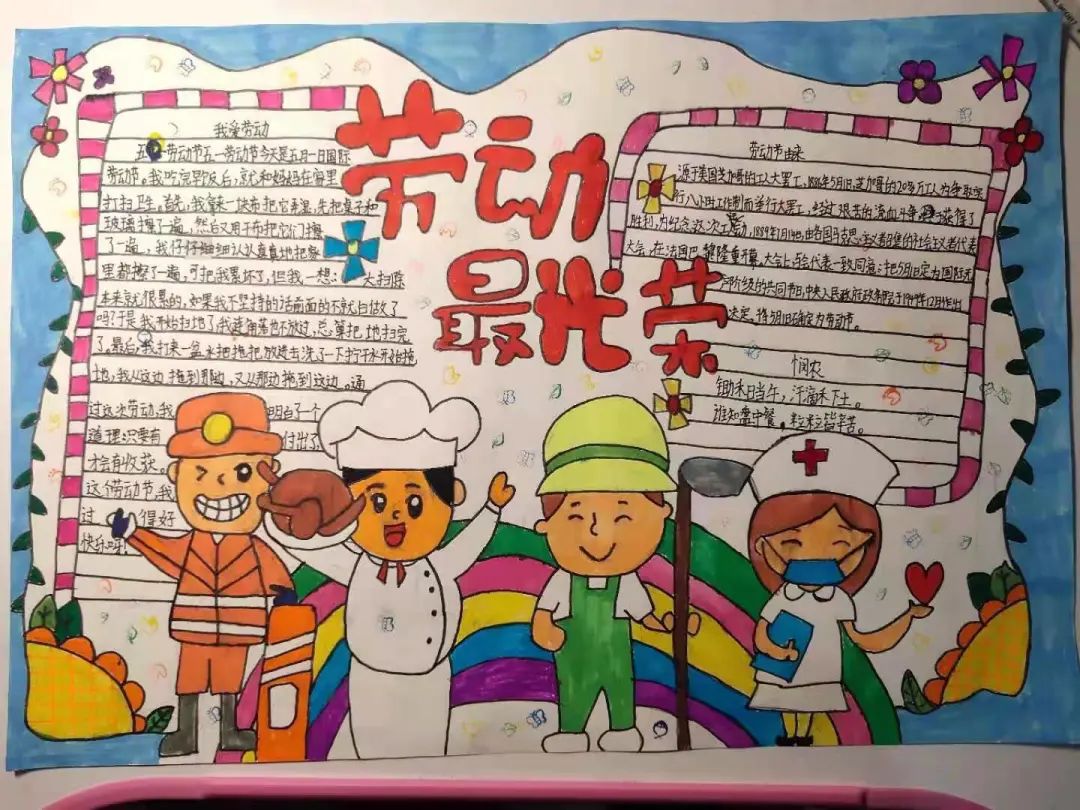 劳动
最光荣
我爱劳动
五一劳动节五一劳动节今天是五月一日国际
劳动节。我吃完早饭后,就和妈妈在家里
打扫卫生,首先,我拿一块布把它弄湿,先把桌子和
玻璃擦了一遍,然后又用干布把它们擦
了一遍,我仔仔细细认认真真地把家
里都擦了一遍,可把我累坏了,但我一想:大扫除
本来就很累的,如果我不坚持的话前面的不就白做了
吗?于是,我开始扫地了,我连角落也不放过,总算把地扫完
了。最后,我打来一盆水把拖把放进去洗了一下拧干水开始拖
地,我从这边拖到那边,又从那边拖到这边。通
过这次劳动,我明白了一个
道理:只要有付出了
才会有收获。
这个劳动节,我
过得好
快乐呀!
劳动节由来
源于美国芝加哥的工人大罢工,1886年5月1日,芝加哥的20多万工人为争取实
行八小时工作制而举行大罢工,经过艰苦的流血斗争,获得了
胜利,为纪念这次工运动,1889年7月14日,由各国马克思主义者召集的社会主义者代表
大会,在法国巴黎隆重开幕,大会上与会代表一致同意:把5月1日定为国际无
产阶级的共同节日,中央人民政府政务院于1949年12月作出
决定,将5月1日确定为劳动节。
悯农
锄禾日当午,汗滴禾下土。
谁知盘中餐,粒粒皆辛苦。